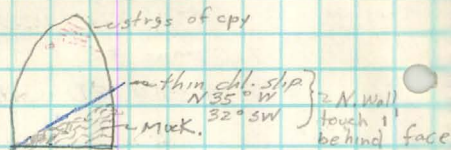 strgs of cpy
thin chl. slip.
N 35° W
32° SW
Muck.
N. Wall
touch 1'
behind face